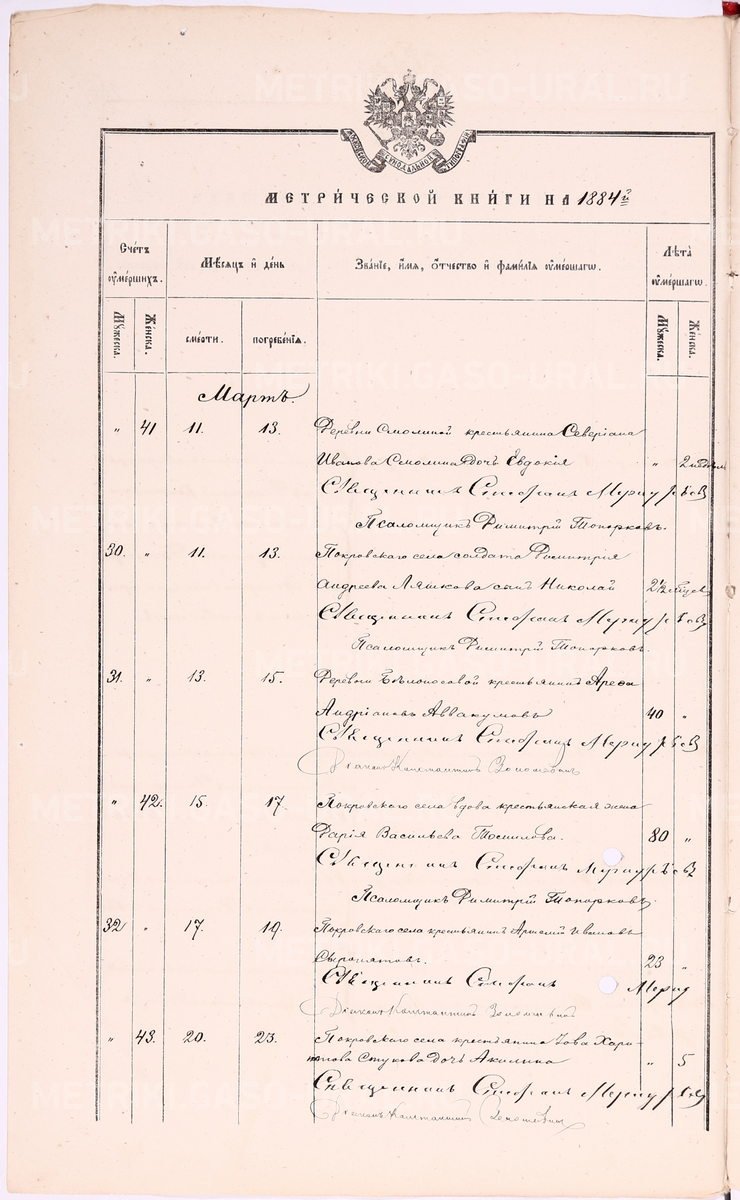 METRIKI.CASO-URAL.RU
МЕТРИ́ЧЕСКОЙ КНИ́ГИ НА 1884 й
Сче́тъ ᲂу҆ме́ршихъ.
Мѣ́сяцъ и҆ де́нь
Зва́нїе, и҆́мѧ, ѻ҆́тчество и҆ фами́лїѧ ᲂу҆ме́ршагѡ.
Лѣ́та ᲂу҆ме́ршагѡ.
Мꙋ́жеска.
Же́нска.
сме́рти.
погребе́нїѧ.
Мꙋ́жеска.
Же́нска.
Мартъ.
" 41 11. 13. Деревни Смолиной крестьянина Северіана
Иванова Смолина дочь Евдокія " 2 недѣли
Священникъ Стефанъ
Псаломщикъ Димитрій Топорковъ.
30. " 11. 13. Покровскаго села солдата Димитрія
Андреева Ляшкова сынъ Николай 2½
Священникъ Стефанъ
Псаломщикъ Димитрій Топорковъ.
31. " 13. 15. Деревни Бѣлоносовой крестьянинъ
Андріановъ Аввакумовъ 40 "
Священникъ Стефанъ
Діаконъ Константинъ
" 42. 15. 17. Покровскаго села вдова крестьянская жена
Дарія Васильева 80 "
Священникъ Стефанъ
Псаломщикъ Димитрій Топорковъ.
32 " 17. 19. Покровскаго села крестьянинъ Ивановъ
Сыропятовъ. 23 "
Священникъ Стефанъ
Діаконъ Константинъ
" 43. 20. 23. Покровскаго села крестьянина Іова Хари-
тонова Стукова дочь Акилина " 5
Священникъ Стефанъ
Діаконъ Константинъ